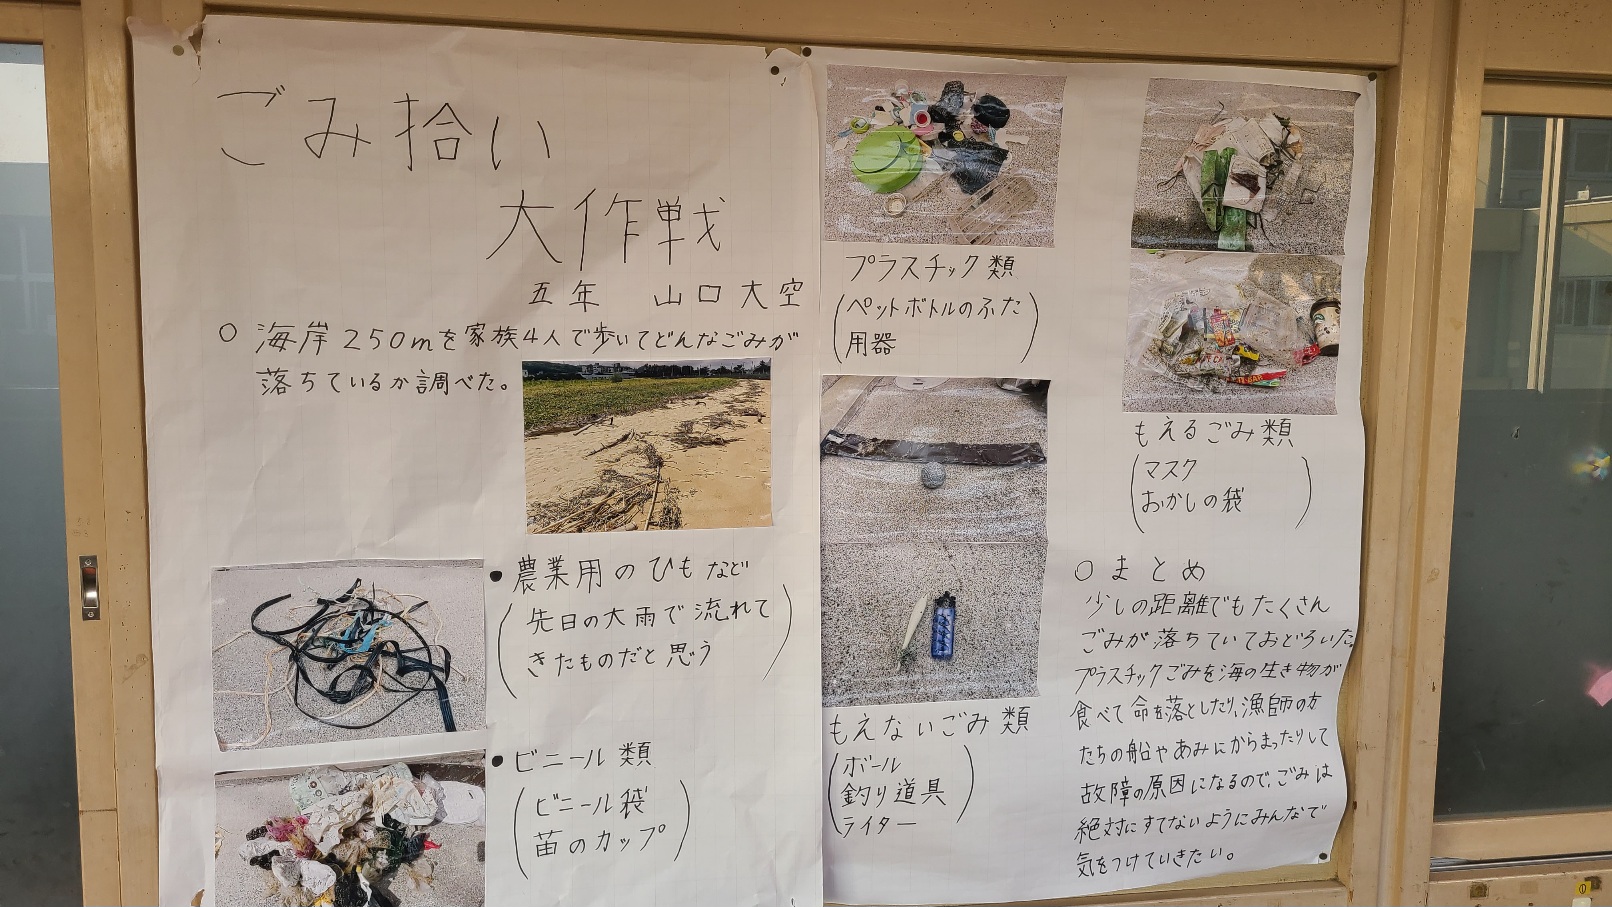 ごみ拾い
大作戦
五年 山口大空
○ 海岸250mを家族4人で歩いてどんなごみが
落ちているか調べた。
●農業用のひもなど
(先日の大雨で流れて
きたものだと思う)
●ビニール類
(ビニール袋
苗のカップ)
プラスチック類
(ペットボトルのふた
用器)
もえないごみ類
(ボール
釣り道具
ライター)
もえるごみ類
(マスク
おかしの袋)
○まとめ
少しの距離でもたくさん
ごみが落ちていておどろいた。
プラスチックごみを海の生き物が
食べて命を落としたり、漁師の方
たちの船やあみにからまったりして
故障の原因になるので、ごみは
絶対にすてないようにみんなで
気をつけていきたい。